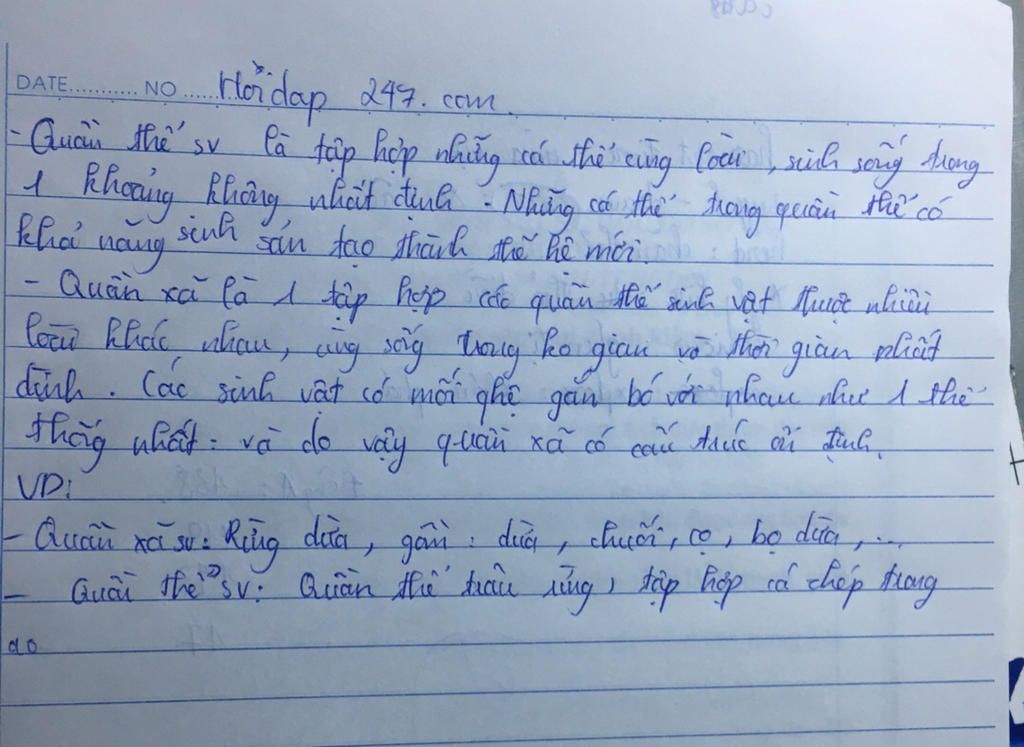 DATE........... NO ...... Hỏi dap 247. com
- Quần thể sv là tập hợp những cá thể cùng loài, sinh sống trong
1 khoảng không nhất định. Những cá thể trong quần thể có
khả năng sinh sản tạo thành thế hệ mới.
- Quần xã là 1 tập hợp các quần thể sinh vật thuộc nhiều
loài khác nhau, cùng sống trong ko gian và thời gian nhất
định. Các sinh vật có mối qhệ gắn bó với nhau như 1 thể
thống nhất. và do vậy quần xã có cấu trúc ổn định.
VD:
- Quần xã sv: Rừng dừa, gồm: dừa, chuối, cọ, bọ dừa,...
- Quần thể sv: Quần thể trâu rừng, tập hợp cá chép trong
ao